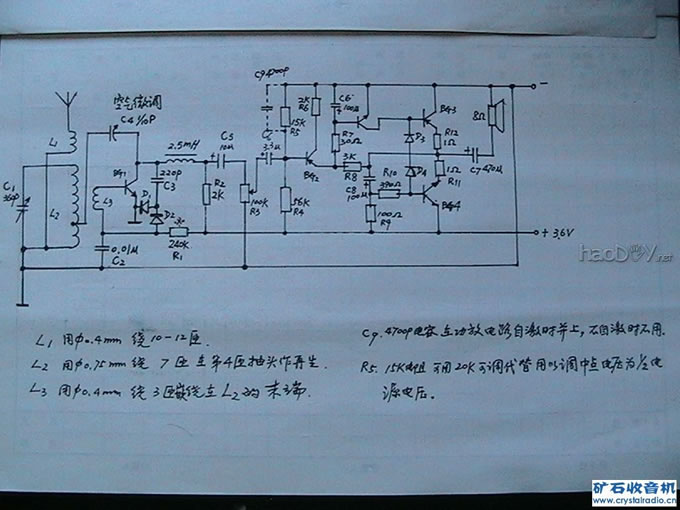 空气微调
C4 1/10P
C9 4700P
L1
L2
L3
C1
360P
BG1
2.5mH
C5
10μ
220P
C3
D1
D2
R2
2K
100K
R3
3.3μ
15K
R5
2K
R6
56K
R4
BG2
C6
100μ
R7
30Ω
3K
R8
C8
100μ
R10
390Ω
100Ω
R9
D3
D4
BG3
R12
1Ω
1Ω
R11
BG4
C7 470μ
8Ω
−
+ 3.6V
0.01μ
C2
240K
R1
haoDIY.net
L1 用φ0.4mm 绕10－12匝.
L2 用φ0.75mm 绕 7匝在第4匝抽头作再生.
L3 用φ0.4mm 绕3匝嵌绕在L2的末端.
C9. 4700P电容在功放电路自激时并上,不自激时不用.
R5. 15K电阻可用20K可调代替用以调中点电压为1/2电
源电压.
矿石收音机
www.crystalradio.cn